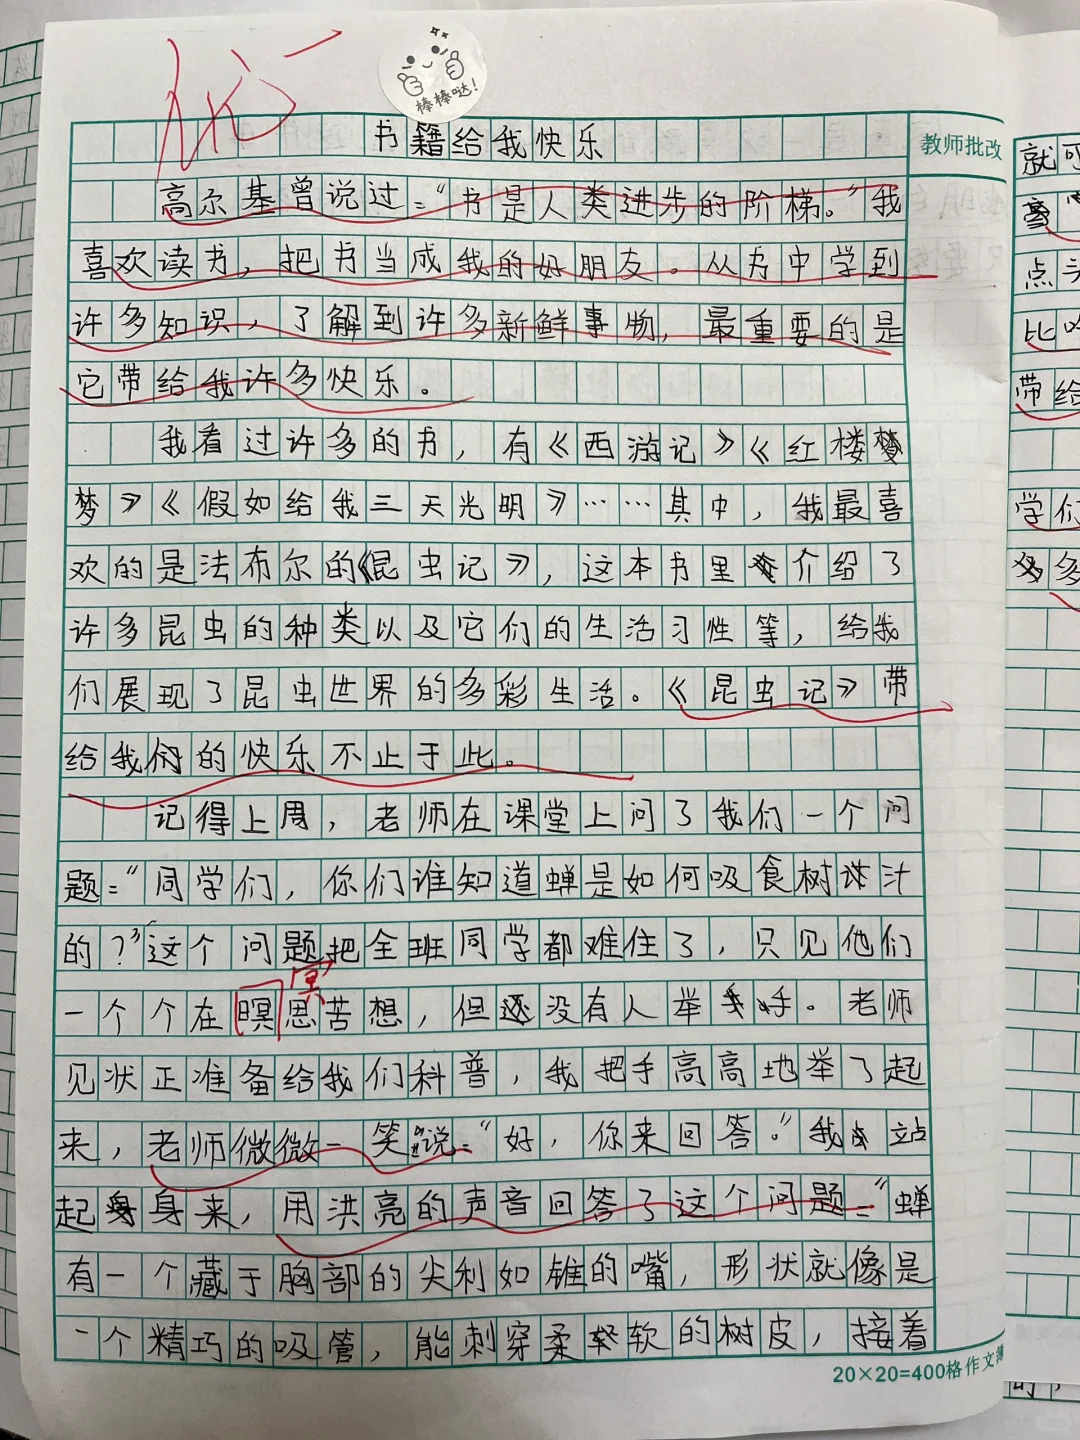 优
棒棒哒!
书籍给我快乐
教师批改
高尔基曾说过:“书是人类进步的阶梯。”我
喜欢读书，把书当成我的好朋友。从书中学到
许多知识，了解到许多新鲜事物，最重要的是
它带给我许多快乐。
我看过许多的书，有《西游记》《红楼
梦》《假如给我三天光明》……其中，我最喜
欢的是法布尔的《昆虫记》，这本书里介绍了
许多昆虫的种类以及它们的生活习性等，给我
们展现了昆虫世界的多彩生活。《昆虫记》带
给我们的快乐不止于此。
记得上周，老师在课堂上问了我们一个问
题:“同学们，你们谁知道蝉是如何吸食树汁
的?”这个问题把全班同学都难住了，只见他们
冥
一个个在暝思苦想，但还没有人举手。老师
见状正准备给我们科普，我把手高高地举了起
来，老师微微一笑说:“好，你来回答。”我站
起身来，用洪亮的声音回答了这个问题:“蝉
有一个藏于胸部的尖利如锥的嘴，形状就像是
一个精巧的吸管，能刺穿柔软的树皮，接着
20×20=400格作文
就
点头
比
带给
学们
多